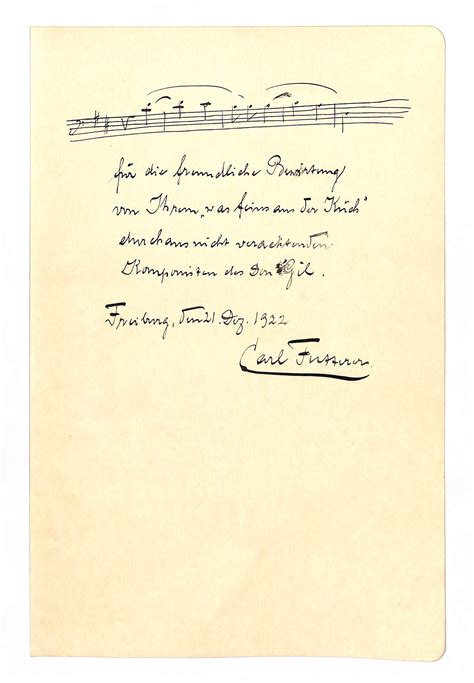 für die freundliche Bewirtung
von Ihrem „was feins aus der Küch"
durchaus nicht verachtenden
Komponisten des Don Gil.
Freiburg, den 21. Dez. 1922
Carl Futterer.